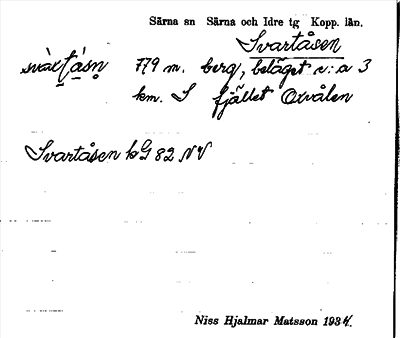 Särna sn Särna och Idre tg Kopp. län.
Svartåsen
svàr̥t̥åsn̥ 779 m. berg, beläget c:a 3
km. S fjället Oxvålen
Svartåsen kG 82 NV
Niss Hjalmar Matsson 1934.